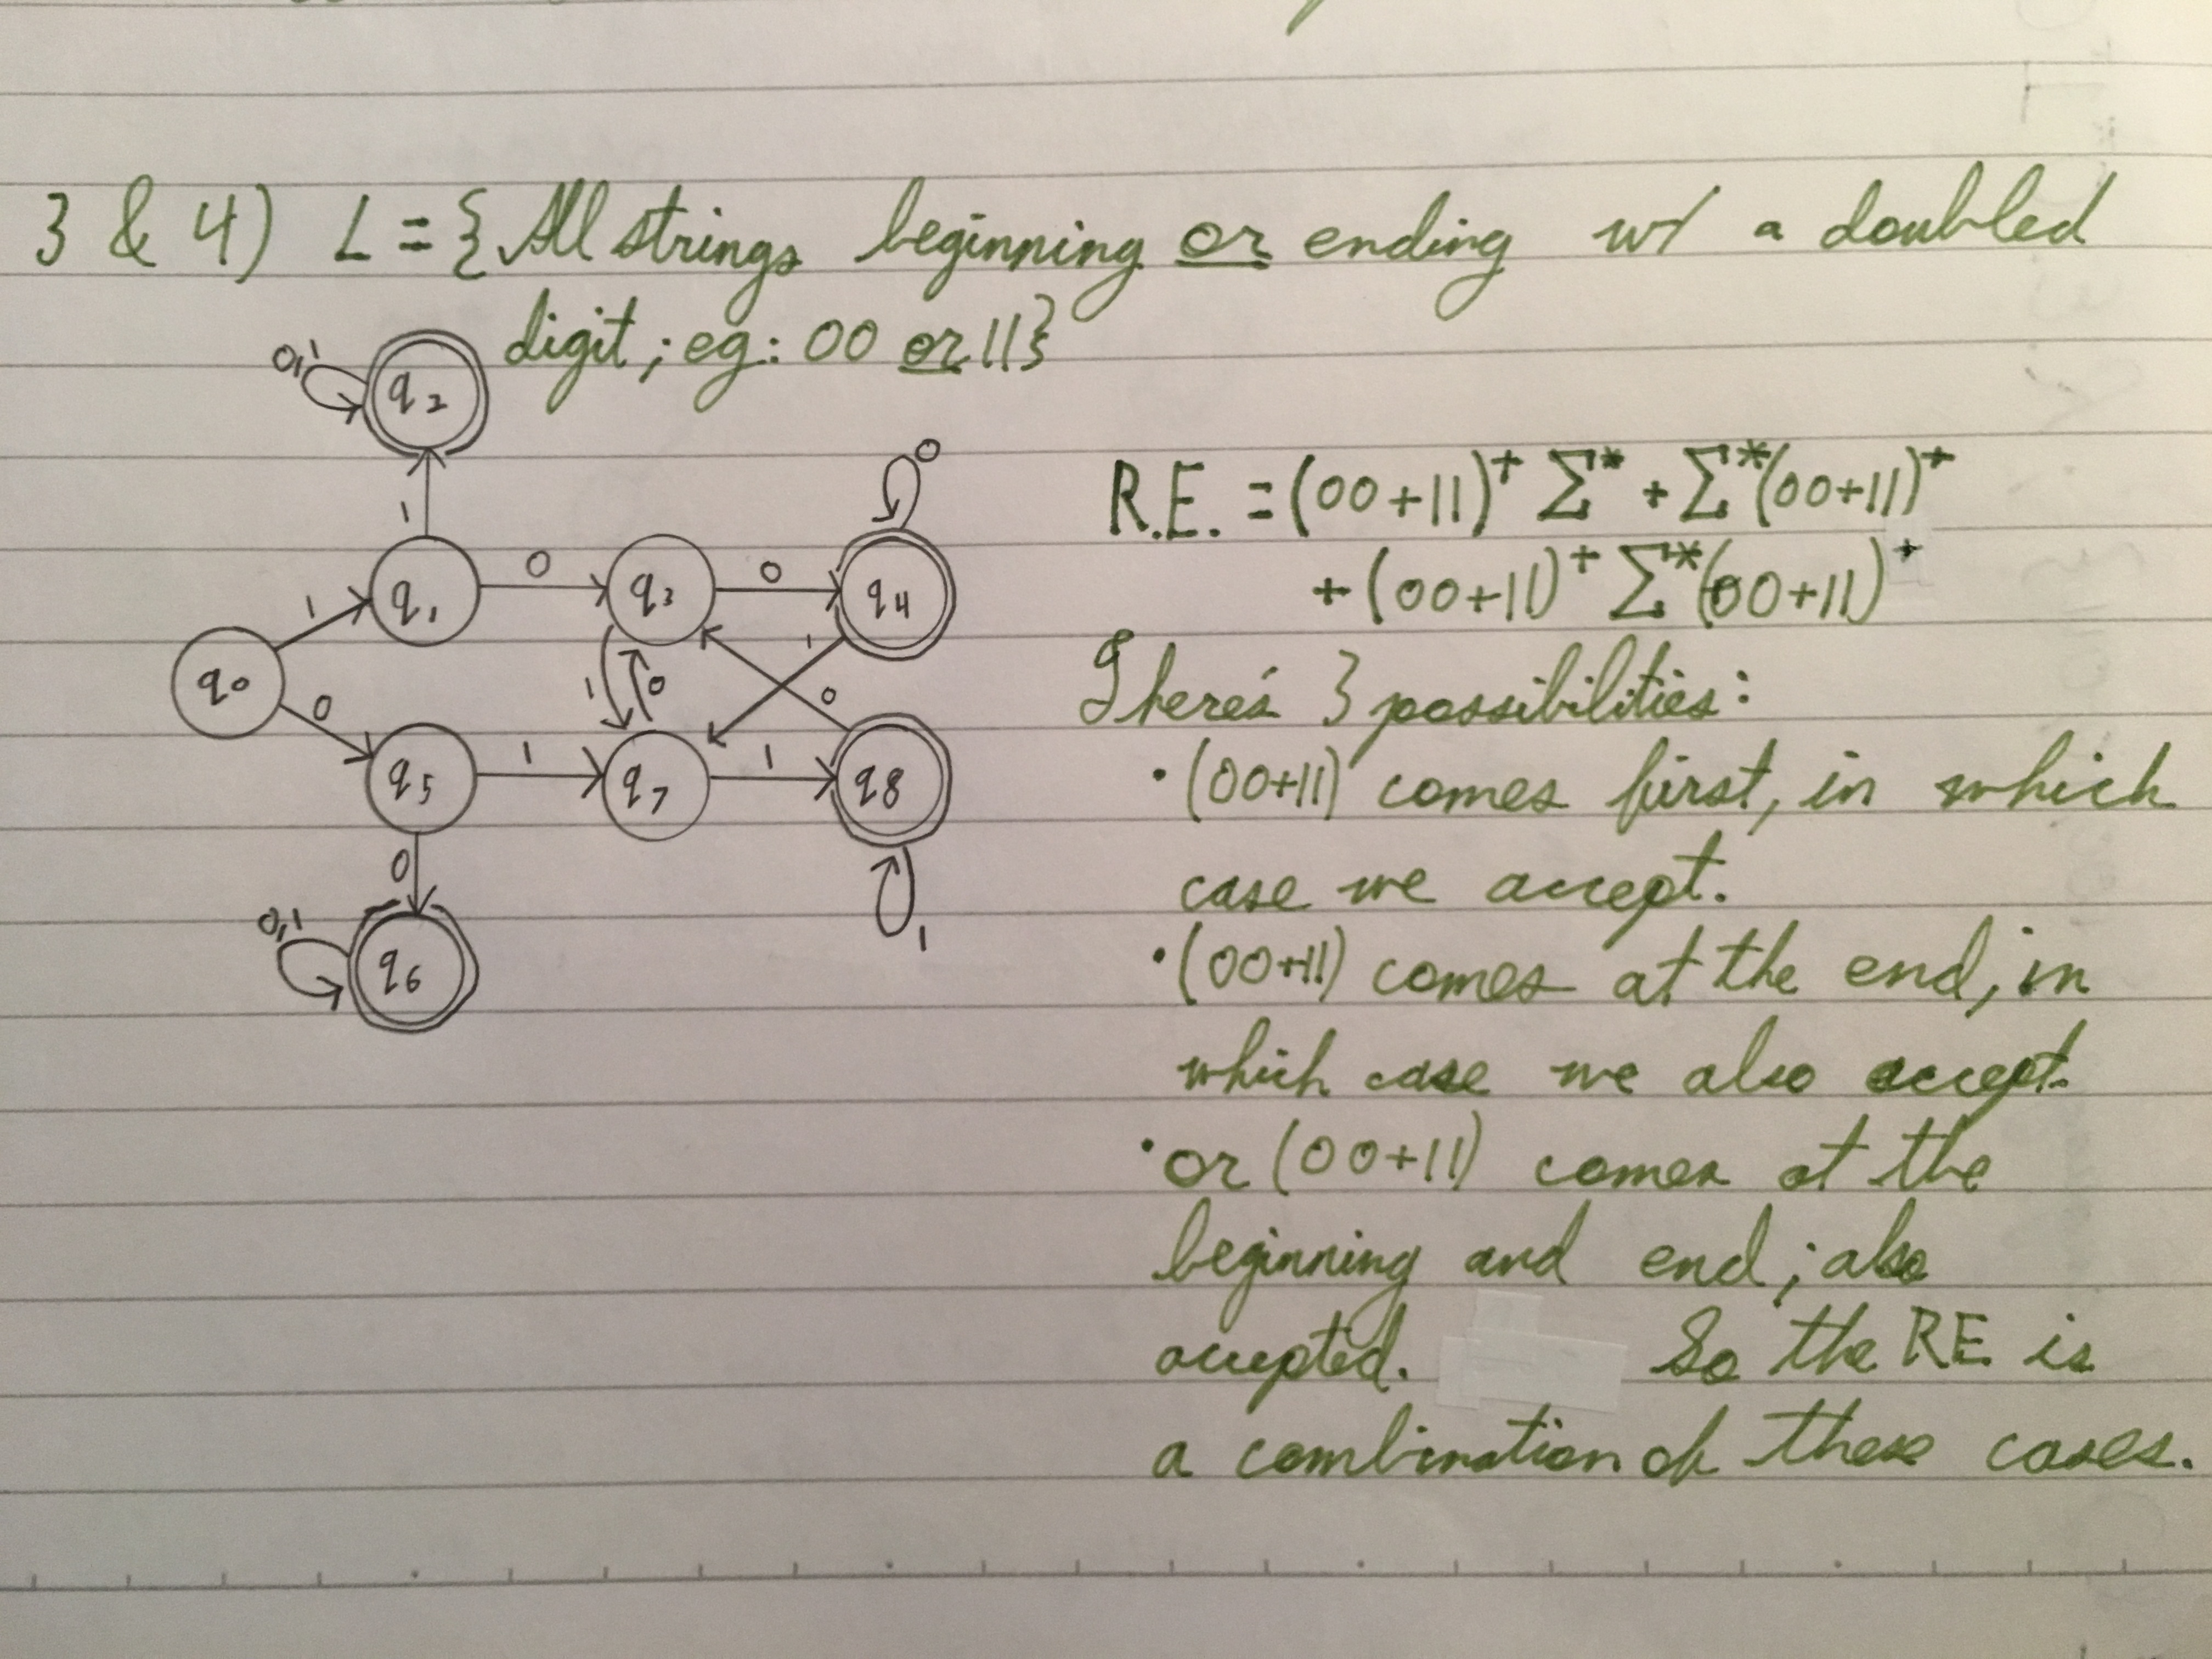 3 & 4) L = {All strings beginning or ending w/ a doubled
digit; eg: 00 or 11}
0,1
q2
0
1
R.E. = (00+11)⁺ Σ* + Σ*(00+11)⁺
+ (00+11)⁺ Σ*(00+11)⁺
q1
0
q3
0
q4
1
q0
1
0
1
0
There's 3 possibilities:
0
q5
1
q7
1
q8
• (00+11) comes first, in which
case we accept.
0
1
0,1
q6
• (00+11) comes at the end, in
which case we also accept.
• or (00+11) comes at the
beginning and end; also
accepted. So the RE is
a combination of these cases.